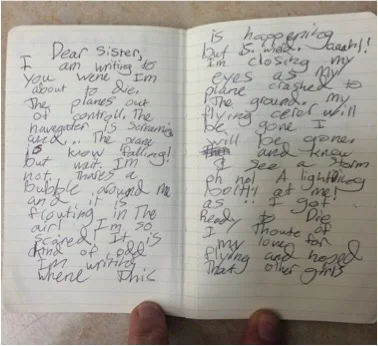 Dear Sister,
I am writing to
you were I'm
about to die.
The planes out
of controll. The
navegater is Screaming
and... The plane
is know falling!
but wait. I'm
not. Thares a
bubble around me
and it is
floating in The
air! I'm so
scared! It is
kind of odd
I'm writing
where this
is happening
but is weird. aaahh!
I'm closing my
eyes as my
plane clashed to
The ground. my
flying carer will
be gone I
will be gone.
and know
I see a storm
oh no! A lightning
bolt!! at me!
as I got
Ready to Die
I Thoute of
my love for
flying and hoped
That other girls